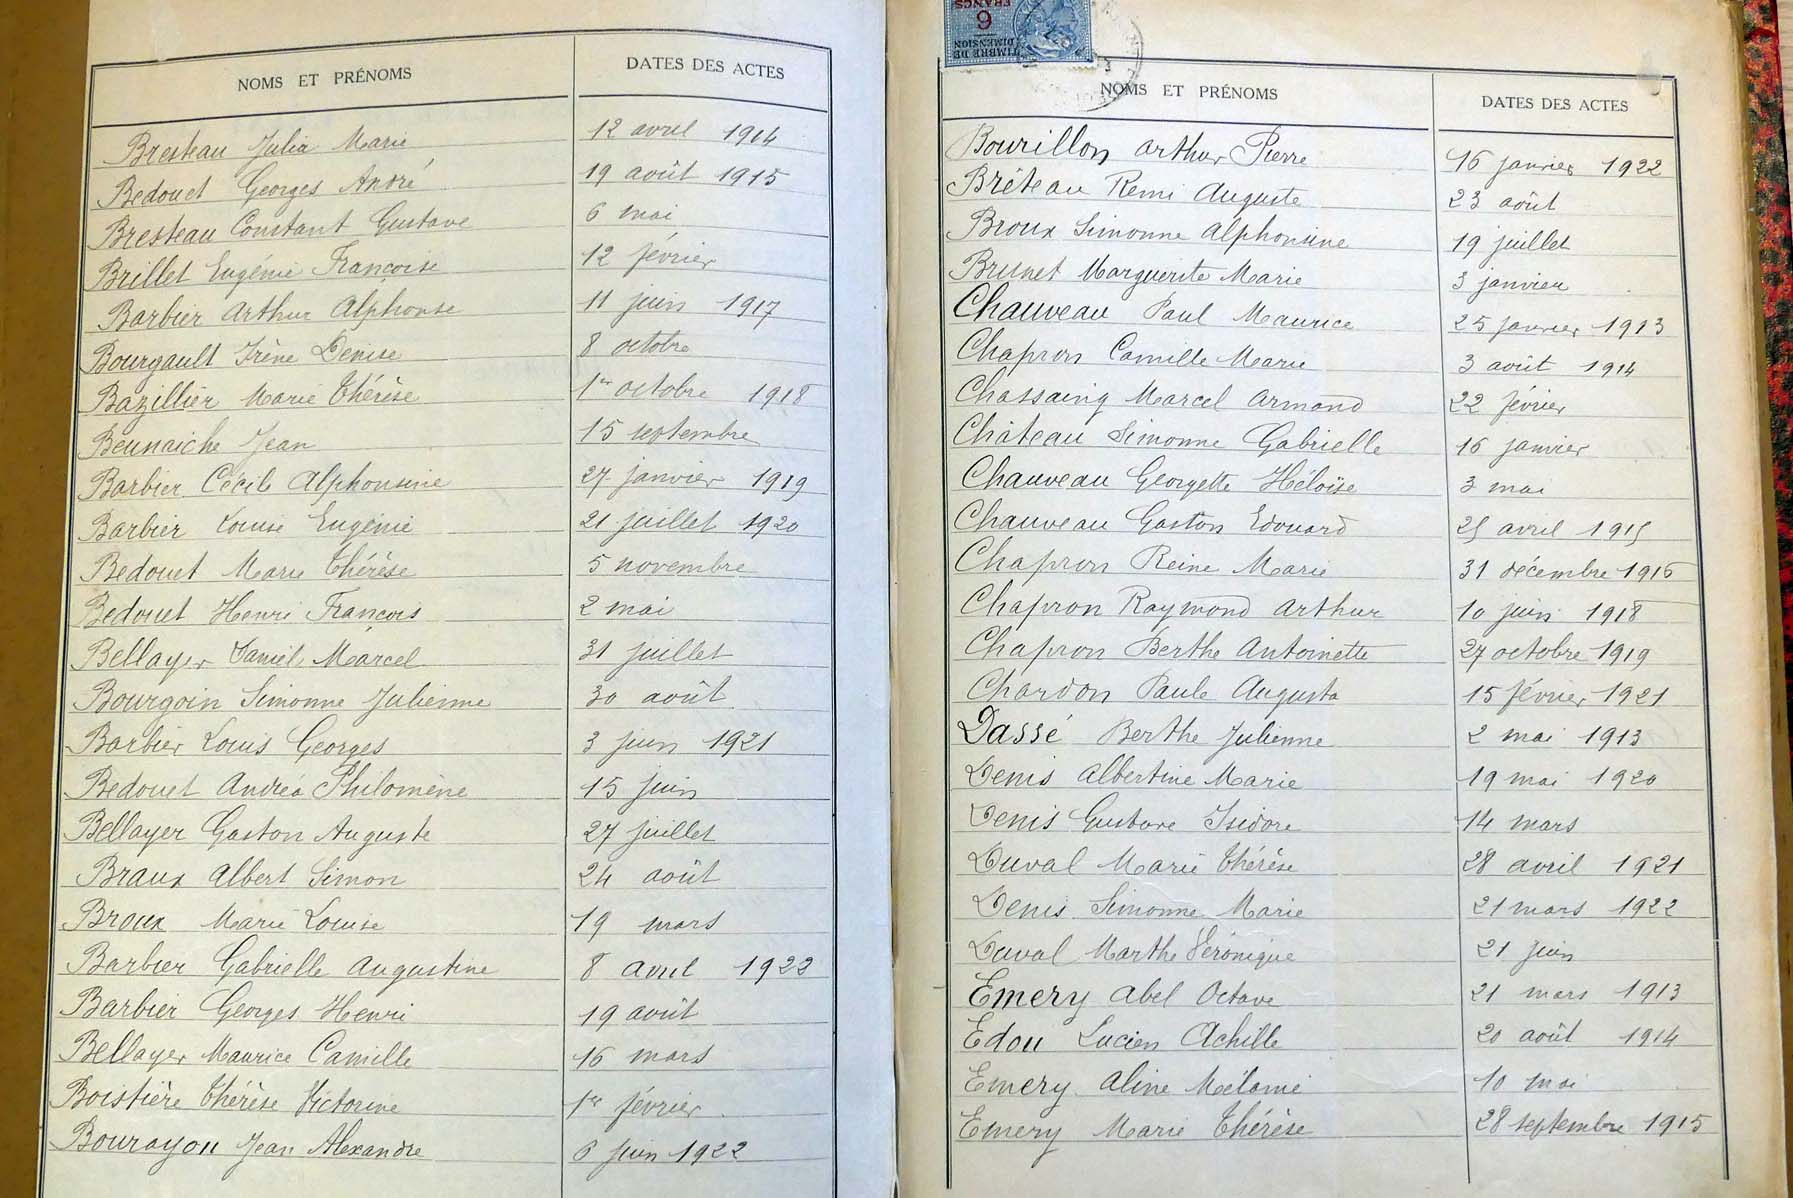 NOMS ET PRÉNOMS DATES DES ACTES
Bresteau Julia Marie 12 avril 1914
Bedouet Georges André 19 août 1915
Bresteau Constant Gustave 6 mai
Brillet Eugénie Françoise 12 février
Barbier Arthur Alphonse 11 juin 1917
Bourgault Irène Denise 8 octobre
Bazillier Marie Thérèse 1er octobre 1918
Beunaiche Jean 15 septembre
Barbier Cécile Alphonsine 27 janvier 1919
Barbier Louise Eugénie 21 juillet 1920
Bedouet Marie Thérèse 5 novembre
Bedouet Henri François 2 mai
Bellayer Daniel Marcel 31 juillet
Bourgoin Simonne Julienne 30 août
Barbier Louis Georges 3 juin 1921
Bedouet Andréa Philomène 15 juin
Bellayer Gaston Auguste 27 juillet
Braux Albert Simon 24 août
Broux Marie Louise 19 mars
Barbier Gabrielle Augustine 8 avril 1922
Barbier Georges Henri 19 août
Bellayer Maurice Camille 16 mars
Boistière Thérèse Victorine 1er février
Bourayou Jean Alexandre 6 juin 1922
TIMBRE DE DIMENSION
6 FRANCS
NOMS ET PRÉNOMS DATES DES ACTES
Bourillon Arthur Pierre 16 janvier 1922
Brêteau Remi Auguste 23 août
Broux Simonne Alphonsine 19 juillet
Brunet Marguerite Marie 3 janvier
Chauveau Paul Maurice 25 janvier 1913
Chapron Camille Marie 3 août 1914
Chassaing Marcel Armand 22 février
Château Simonne Gabrielle 16 janvier
Chauveau Georgette Héloïse 3 mai
Chauveau Gaston Edouard 25 avril 1915
Chapron Reine Marie 31 décembre 1916
Chapron Raymond Arthur 10 juin 1918
Chapron Berthe Antoinette 27 octobre 1919
Chardon Paule Augusta 15 février 1921
Dassé Berthe Julienne 2 mai 1913
Denis Albertine Marie 19 mai 1920
Denis Gustave Isidore 14 mars
Duval Marie Thérèse 28 avril 1921
Denis Simonne Marie 21 mars 1922
Duval Marthe Véronique 21 juin
Emery Abel Octave 21 mars 1913
Edou Lucien Achille 20 août 1914
Emery Aline Mélanie 10 mai
Emery Marie Thérèse 28 septembre 1915